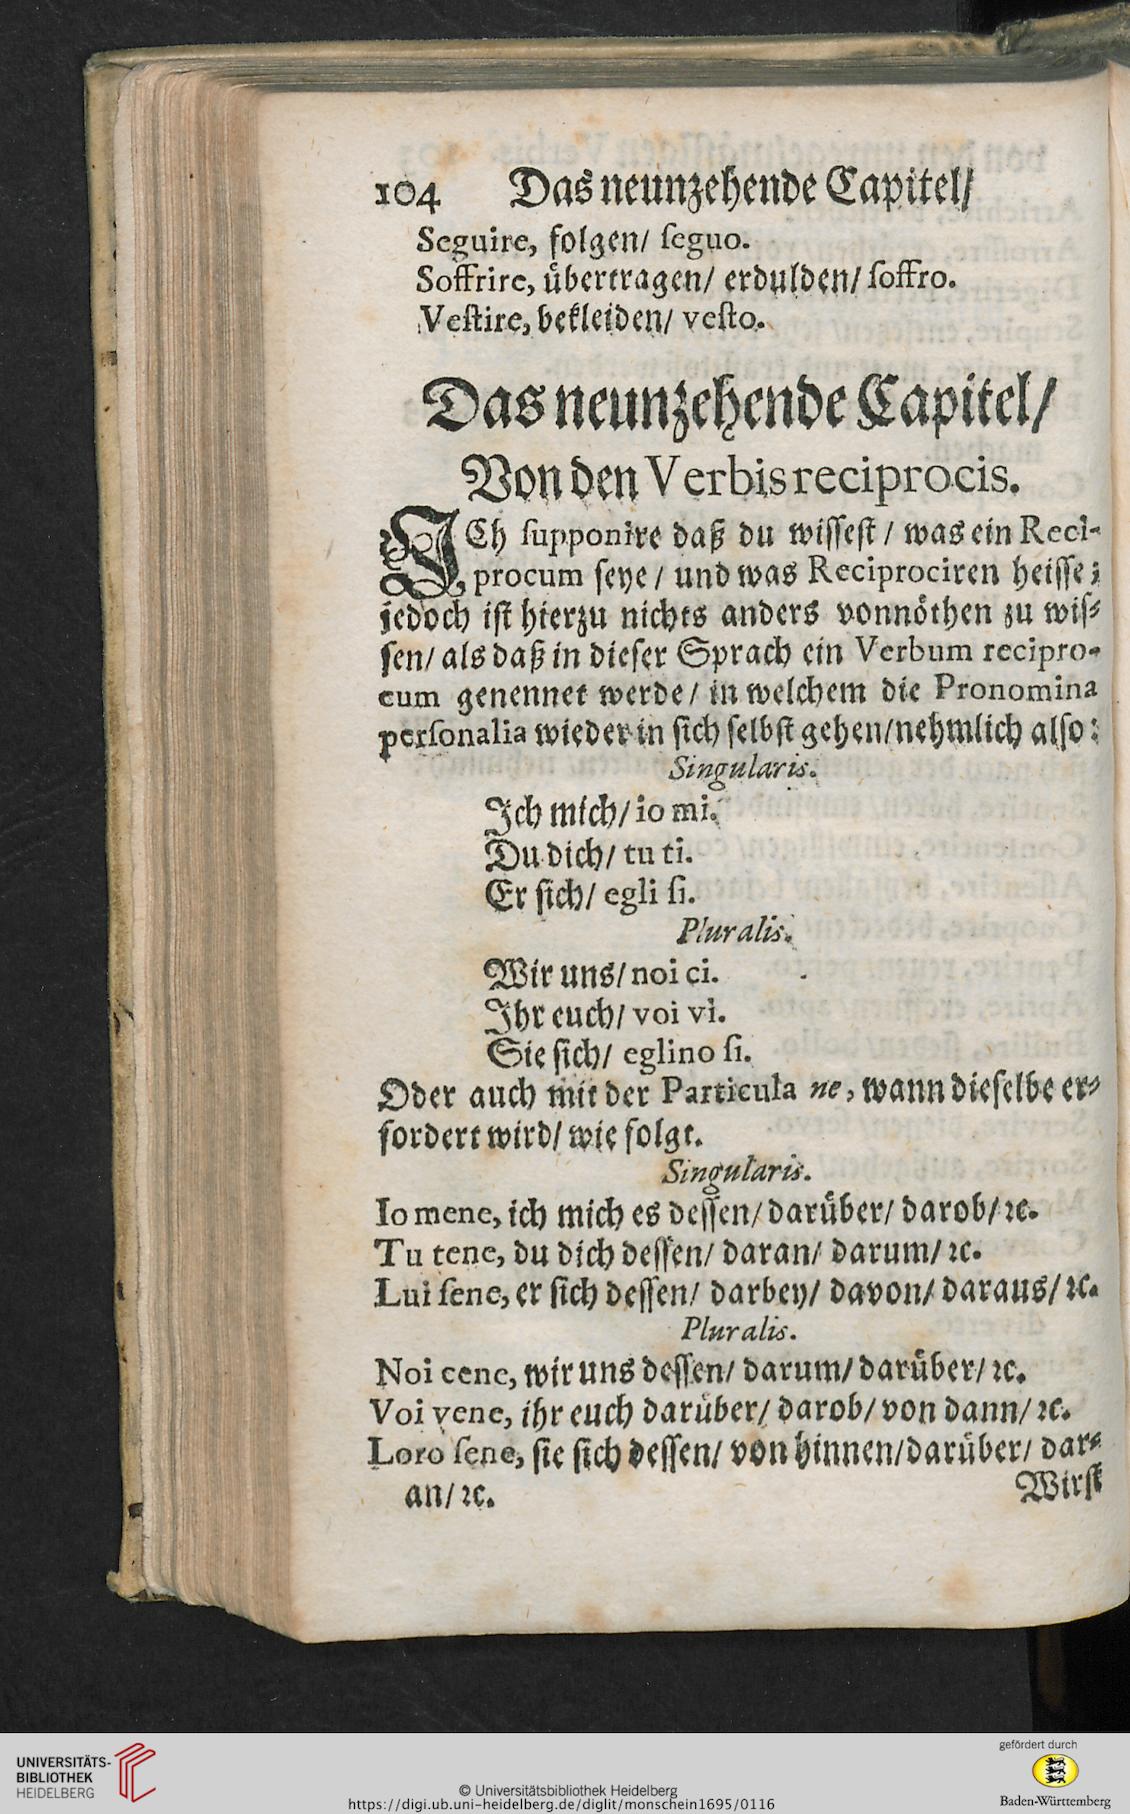 104 Das neunzehende Capitel/
Seguire, folgen/ ſeguo.
Soffrire, übertragen/ erdulden/ ſoffro.
Veſtire, bekleiden/ veſto.
Das neunzehende Capitel/
Von den Verbis reciprocis.
ICh ſupponire daß du wiſſeſt / was ein Reci-
procum ſeye / und was Reciprociren heiſſe;
jedoch iſt hierzu nichts anders vonnöthen zu wiſ-
ſen/ als daß in dieſer Sprach ein Verbum recipro-
cum genennet werde/ in welchem die Pronomina
perſonalia wieder in ſich ſelbſt gehen/nehmlich alſo:
Singularis.
Ich mich/ io mi.
Du dich/ tu ti.
Er ſich/ egli ſi.
Pluralis.
Wir uns/ noi ci.
Ihr euch/ voi vi.
Sie ſich/ eglino ſi.
Oder auch mit der Particula ne, wann dieſelbe er-
fordert wird/ wie folgt.
Singularis.
Io mene, ich mich es deſſen/ darüber/ darob/ ꝛc.
Tu tene, du dich deſſen/ daran/ darum/ ꝛc.
Lui ſene, er ſich deſſen/ darbey/ davon/ daraus/ ꝛc.
Pluralis.
Noi cene, wir uns deſſen/ darum/ darüber/ ꝛc.
Voi vene, ihr euch darüber/ darob/ von dann/ ꝛc.
Loro ſene, ſie ſich deſſen/ von hinnen/darüber/ dar-
an/ ꝛc. Wirſt
UNIVERSITÄTS-
BIBLIOTHEK
HEIDELBERG
© Universitätsbibliothek Heidelberg
https://digi.ub.uni-heidelberg.de/diglit/monschein1695/0116
gefördert durch
Baden-Württemberg